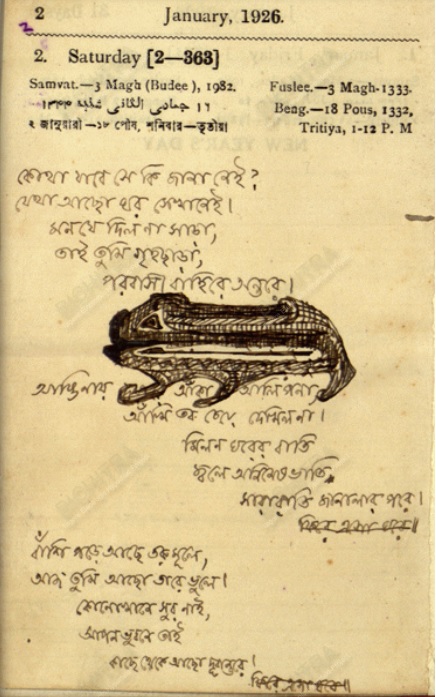 2 January, 1926.
2. Saturday [2—363]
Samvat.—3 Magh (Budee), 1982. Fuslee.—3 Magh-1333.
١٦ جمادي الثاني شنبه ١٣٤٤ Beng.—18 Pous, 1332,
২ জানুয়ারী—১৮ পৌষ, শনিবার—তৃতীয়া Tritiya, 1-12 P. M
কোথা যাবে সে কি জানা নেই?
যেথা আছো ঘর সেখানেই।
মন যে দিল না সাড়া,
তাই তুমি গৃহছাড়া,
পরবাসী বাহিরে অন্তরে।
আঙিনায় আঁকা আলিপনা,
আঁখি তব চেয়ে দেখিল না।
মিলন ঘরের বাতি
জ্বলে অনিমেষভাতি
সারারাতি জানালার পরে।
বাঁশি পড়ে আছে তরুমূলে,
আজ তুমি আছো তারে ভুলে।
কোনোখানে সুর নাই,
আপন ভুবনে তাই
কাছে থেকে আছো দূরান্তরে।